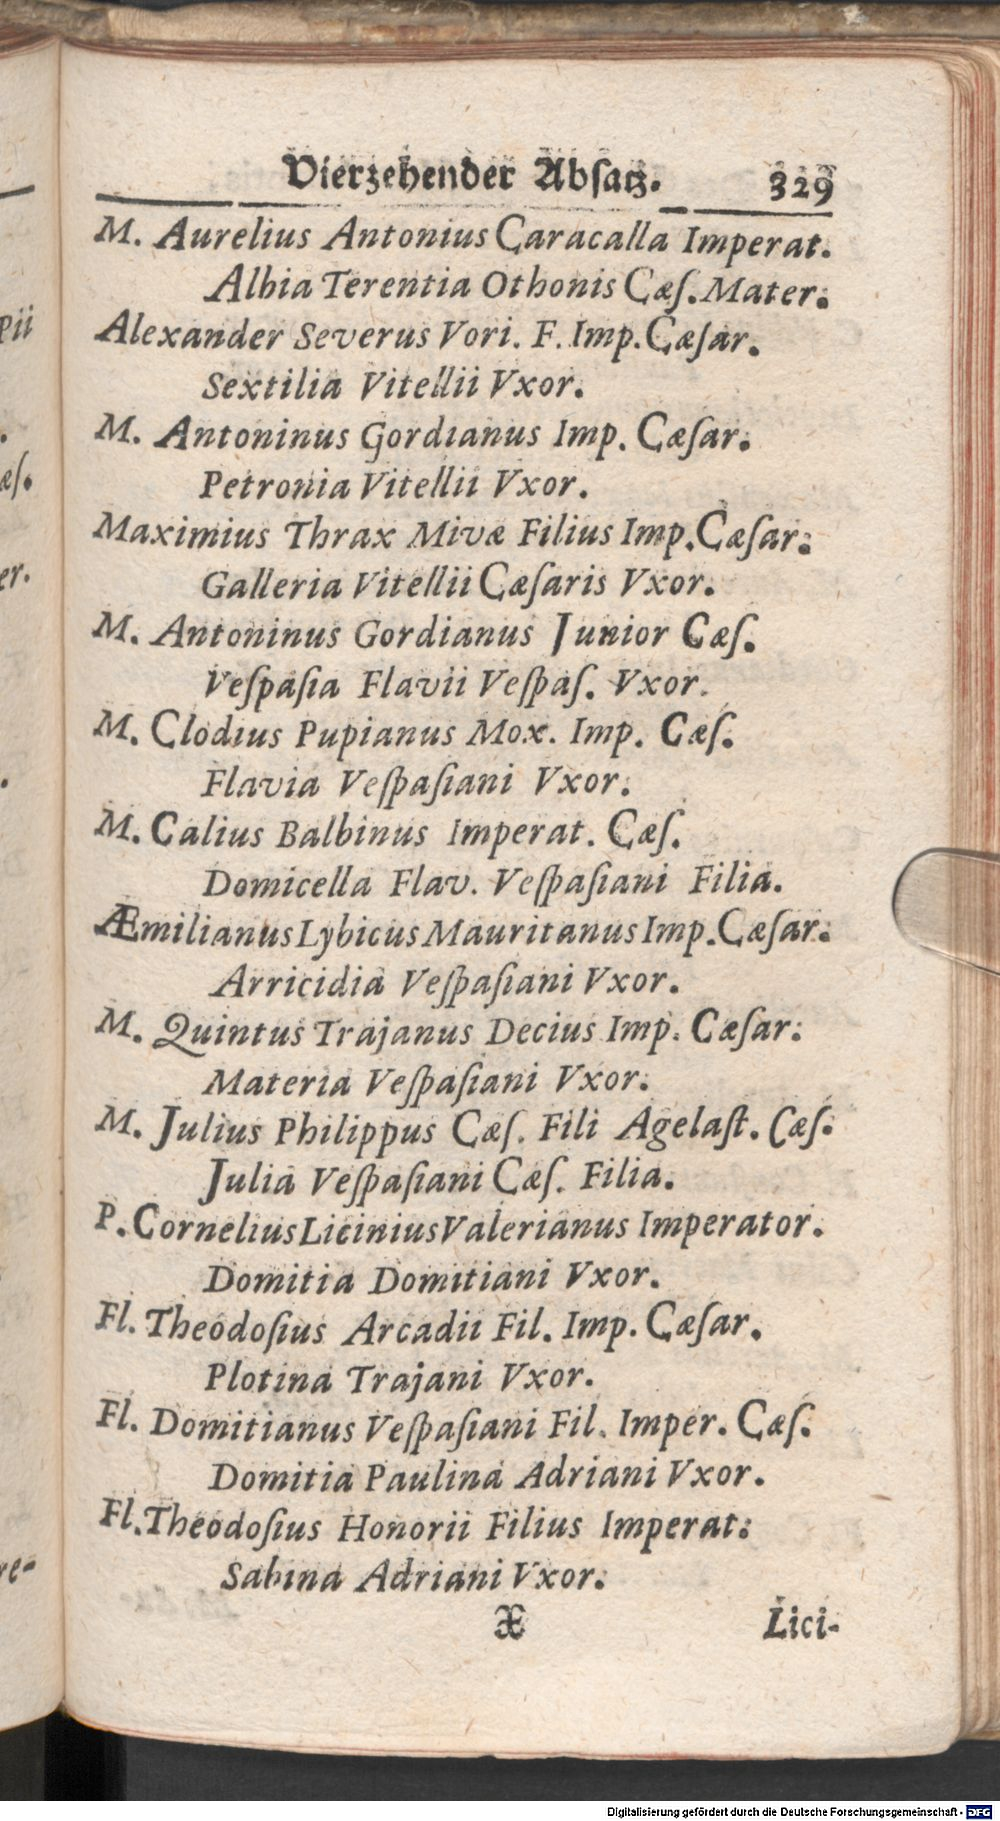 Vierzehender Absatz. 329
M. Aurelius Antonius Caracalla Imperat.
Albia Terentia Othonis Cæſ. Mater.
Alexander Severus Vori. F. Imp. Cæſar.
Sextilia Vitellii Vxor.
M. Antoninus Gordianus Imp. Cæſar.
Petronia Vitellii Vxor.
Maximius Thrax Mivæ Filius Imp. Cæſar.
Galleria Vitellii Cæſaris Vxor.
M. Antoninus Gordianus Junior Cæſ.
Veſpaſia Flavii Veſpaſ. Vxor.
M. Clodius Pupianus Mox. Imp. Cæſ.
Flavia Veſpaſiani Vxor.
M. Calius Balbinus Imperat. Cæſ.
Domicella Flav. Veſpaſiani Filia.
Æmilianus Lybicus Mauritanus Imp. Cæſar.
Arricidia Veſpaſiani Vxor.
M. Quintus Trajanus Decius Imp. Cæſar.
Materia Veſpaſiani Vxor.
M. Julius Philippus Cæſ. Fili Agelaſt. Cæſ.
Julia Veſpaſiani Cæſ. Filia.
P. Cornelius Licinius Valerianus Imperator.
Domitia Domitiani Vxor.
Fl. Theodoſius Arcadii Fil. Imp. Cæſar.
Plotina Trajani Vxor.
Fl. Domitianus Veſpaſiani Fil. Imper. Cæſ.
Domitia Paulina Adriani Vxor.
Fl. Theodoſius Honorii Filius Imperat.
Sabina Adriani Vxor.
Æ Lici-
Digitalisierung gefördert durch die Deutsche Forschungsgemeinschaft - DFG